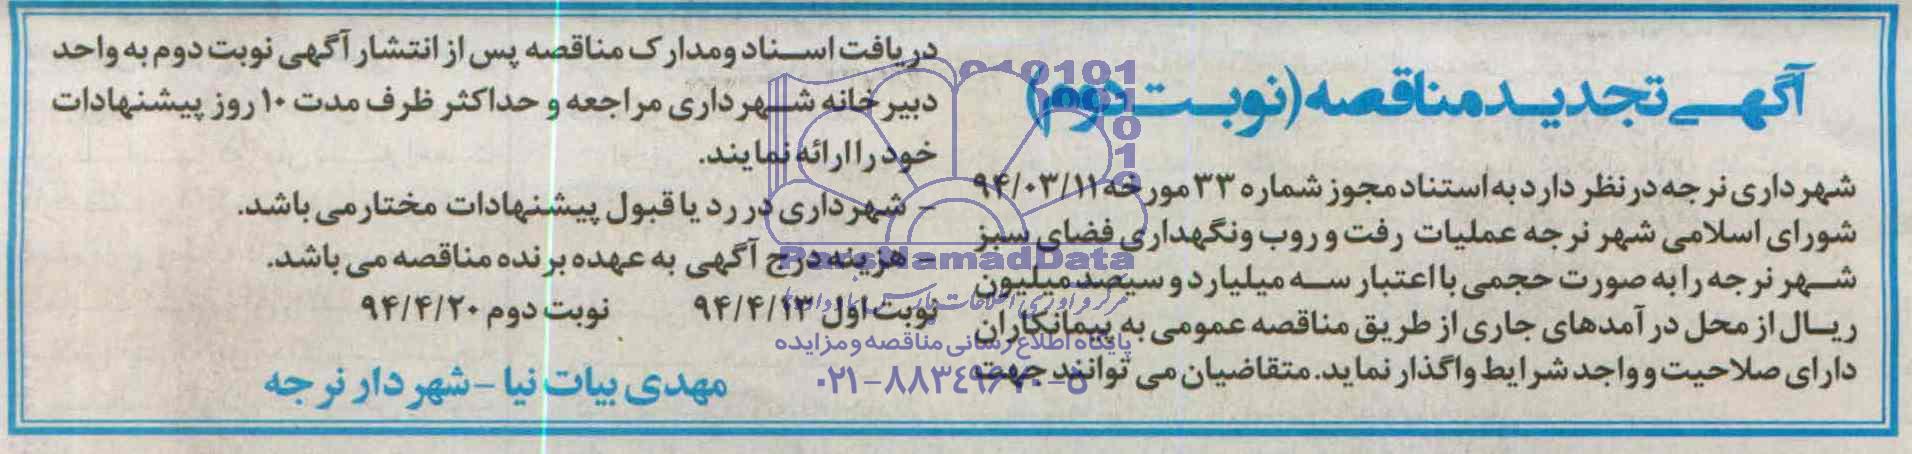 آگهی تجدید مناقصه (نوبت دوم)
شهرداری نرجه در نظر دارد به استناد مجوز شماره ۳۳ مورخه ۹۴/۰۳/۱۱
شورای اسلامی شهر نرجه عملیات رفت و روب و نگهداری فضای سبز
شهر نرجه را به صورت حجمی با اعتبار سه میلیارد و سیصد میلیون
ریال از محل درآمدهای جاری از طریق مناقصه عمومی به پیمانکاران
دارای صلاحیت و واجد شرایط واگذار نماید. متقاضیان می توانند جهت
دریافت اسناد و مدارک مناقصه پس از انتشار آگهی نوبت دوم به واحد
دبیرخانه شهرداری مراجعه و حداکثر ظرف مدت ۱۰ روز پیشنهادات
خود را ارائه نمایند.
- شهرداری در رد یا قبول پیشنهادات مختار می باشد.
- هزینه درج آگهی به عهده برنده مناقصه می باشد.
نوبت اول ۹۴/۴/۱۳ نوبت دوم ۹۴/۴/۲۰
مهدی بیات نیا - شهردار نرجه
ParsNamadData
پایگاه اطلاع رسانی مناقصه و مزایده